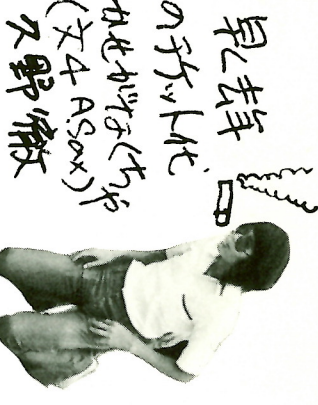 早く去年
のチケット代、
かせがなくちゃ
(文4 A.Sax)
野 徹